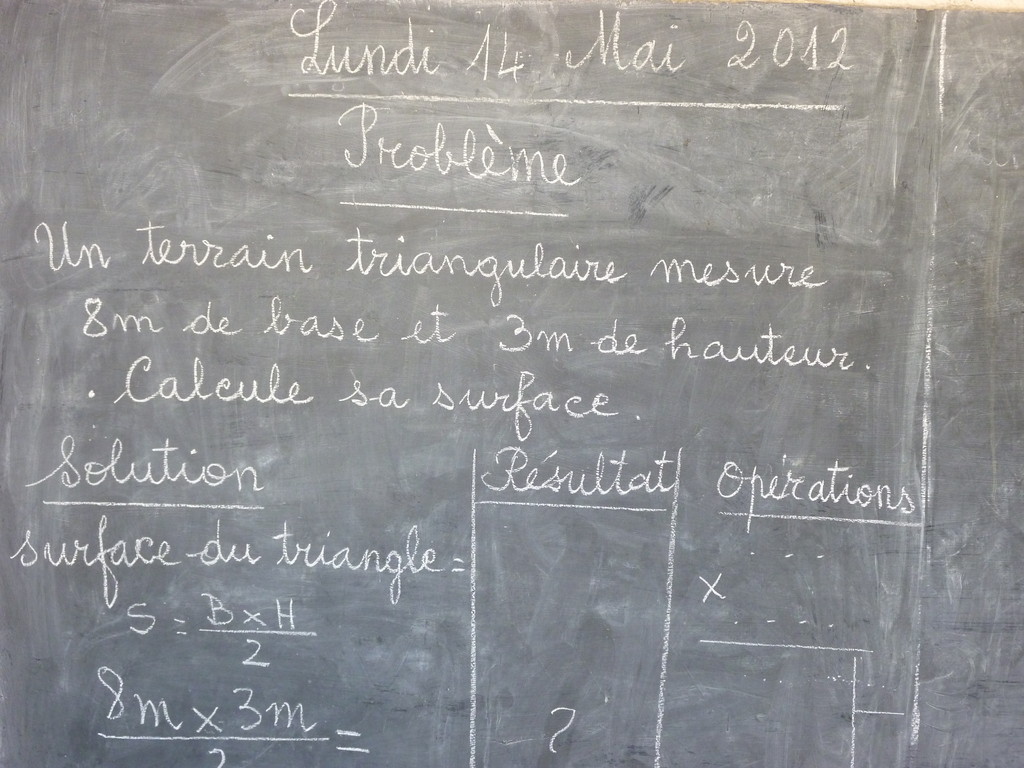 Lundi 14 Mai 2012
Problème
Un terrain triangulaire mesure
8m de base et 3m de hauteur.
. Calcule sa surface.
Solution
Résultat
Opérations
surface du triangle =
S = B x H
2
8m x 3m =
2
?
x